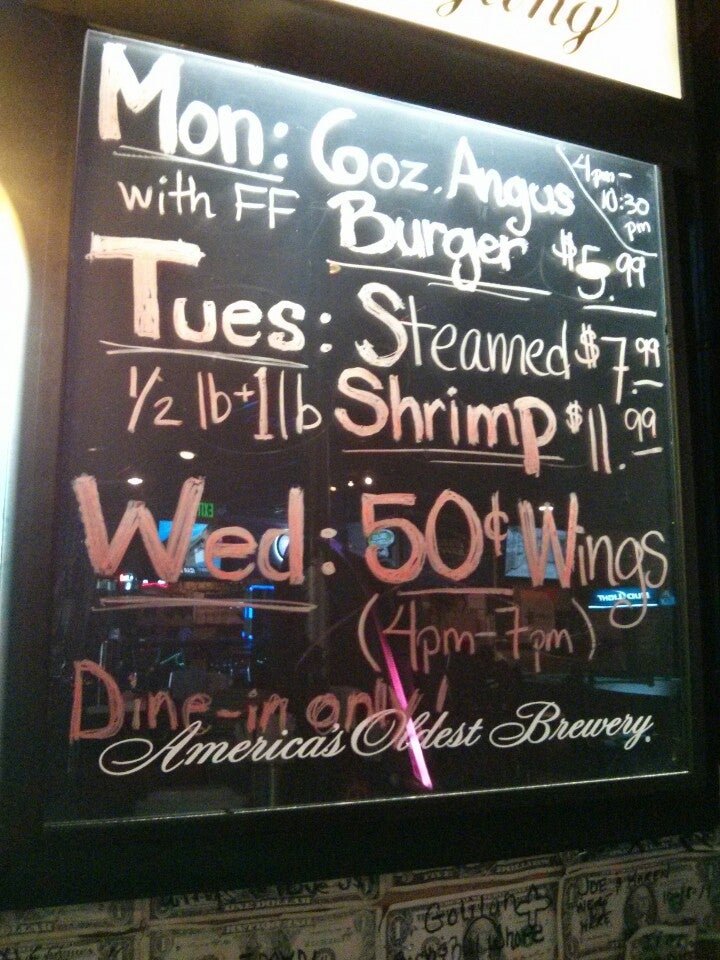 Mon: 6oz. Angus 4pm-
with FF Burger $5.99 10:30
pm
Tues: Steamed $7.99
1/2 lb + 1 lb Shrimp $11.99
Wed: 50¢ Wings
(4pm-7pm)
Dine-in only!
America's Oldest Brewery.
JOE & KAREN
WERE
HERE